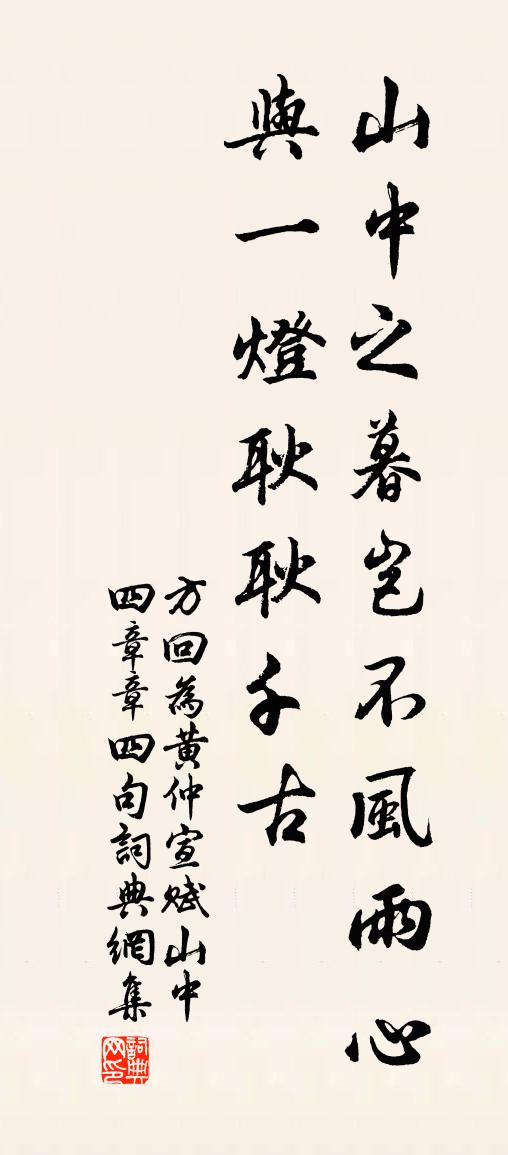 山中之暮豈不風雨心
與一燈耿耿千古
方回為黃仲宣賦山中
四章章四句詞典網集
詞典网印